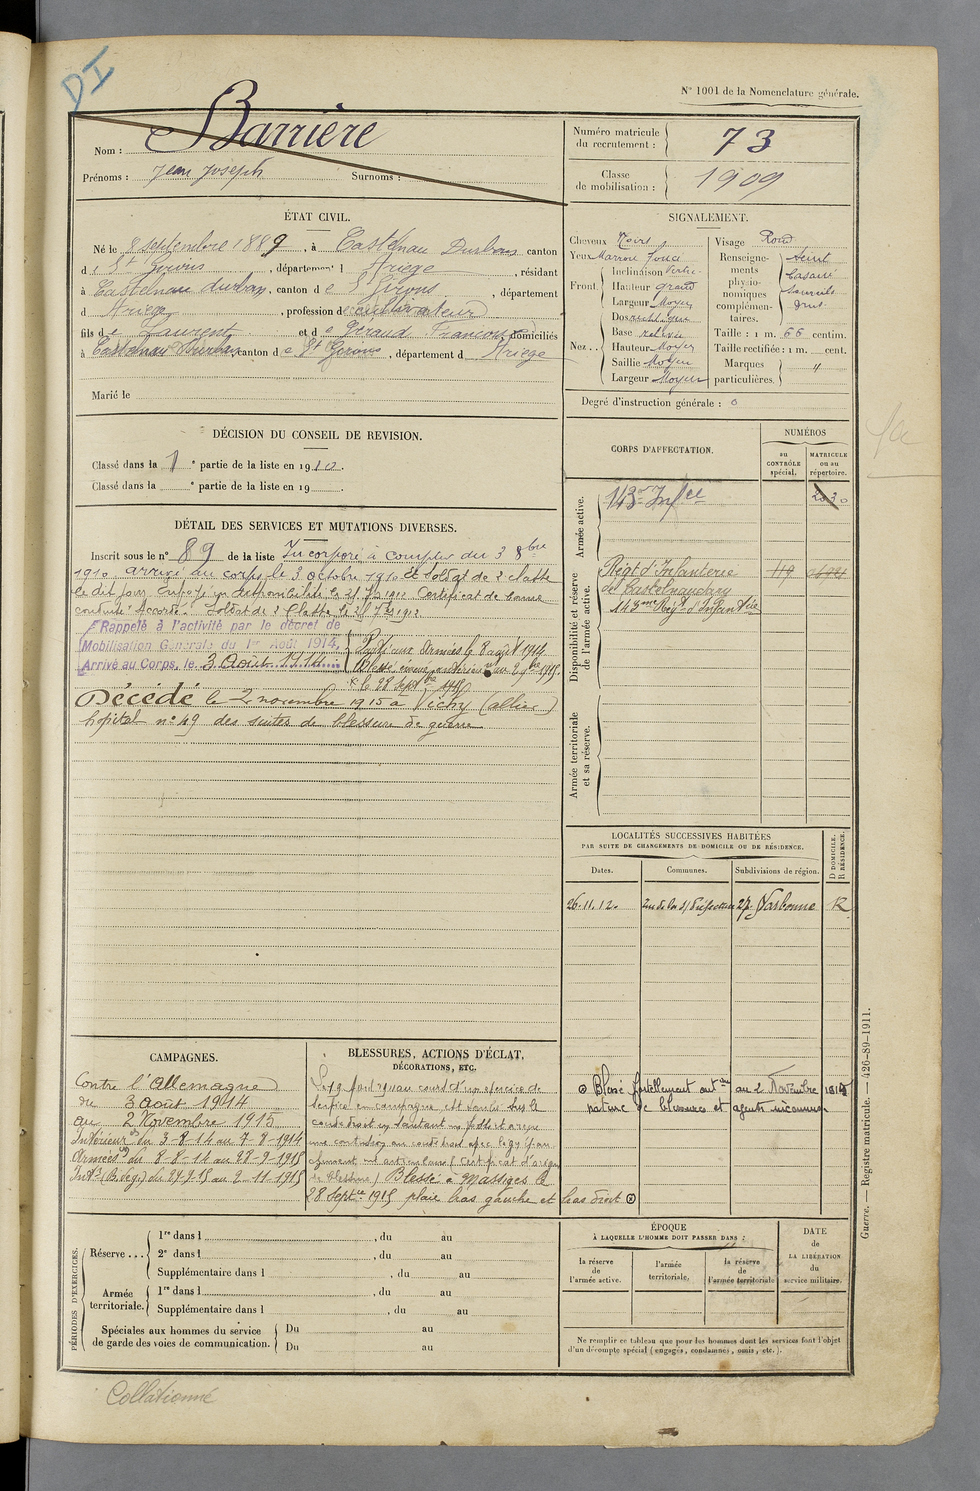 DI
N° 1001 de la Nomenclature générale.
Nom : Barrière
Prénoms : Jean Joseph Surnoms :
Numéro matricule du recrutement : 73
Classe de mobilisation : 1909
ÉTAT CIVIL.
Né le 8 septembre 1889, à Castelnau Durban, canton
de St Girons, département d Ariège, résidant
à Castelnau durban, canton de St Girons, département
d Ariège, profession de cultivateur
fils de Laurent et de Géraud Françoise domiciliés
à Castelnau Durban canton de St Girons, département d Ariège
Marié le
SIGNALEMENT.
Cheveux Noirs
Yeux Marron foncé
Front. Inclinaison Vertic.
Hauteur grand
Largeur Moyen
Nez.. Dos rectiligne
Base relevée
Hauteur Moyen
Saillie Moyen
Largeur Moyen
Visage Rond
Renseignements physionomiques complémentaires. teint
Sourcils
Taille : 1 m. 66 centim.
Taille rectifiée : 1 m. cent.
Marques particulières. "
Degré d'instruction générale : 0
DÉCISION DU CONSEIL DE REVISION.
Classé dans la 1 e partie de la liste en 1910.
Classé dans la e partie de la liste en 19
DÉTAIL DES SERVICES ET MUTATIONS DIVERSES.
Inscrit sous le n° 89 de la liste Incorporé à compter du 3 8bre
1910, arrivé au corps le 3 octobre 1910 et soldat de 2 classe
le dit jour. Envoyé en disponibilité le 25 7bre 1912 Certificat de bonne
conduite "Accordé". Soldat de 2 Classe le 25 7bre 1912
Rappelé à l'activité par le décret de
Mobilisation Générale du 1er Août 1914.
Arrivé au Corps, le 3 Août 1914
Parti aux Armées le 8 août 1914
le 28 Septbre 1915
Décédé le 2 novembre 1915 à Vichy (allier)
hôpital n° 49 des suites de blessure de guerre
CORPS D'AFFECTATION.
NUMÉROS
au CONTRÔLE spécial.
MATRICULE ou au répertoire.
Armée active.
143e Infie
Disponibilité et réserve de l'armée active.
Régt d'Infanterie 119
de Castelnaudary
143eme Regt d'Infanterie
Armée territoriale et sa réserve.
LOCALITÉS SUCCESSIVES HABITÉES
PAR SUITE DE CHANGEMENTS DE DOMICILE OU DE RÉSIDENCE.
Dates. Communes. Subdivisions de région. D DOMICILE. R RÉSIDENCE.
26.11.12. Préfecture 27 Narbonne R
CAMPAGNES.
Contre l'Allemagne
du 3 août 1914
au 2 Novembre 1915
Intérieur du 3-8-14 au 7-8-1914
Armées du 8-8-14 au 28-9-1915
Intr (B. de g.) du 29-9-15 au 2-11-1915
BLESSURES, ACTIONS D'ÉCLAT,
DÉCORATIONS, ETC.
au cours d'un exercice de
service en campagne est tombé sur le
coude droit en sautant un fossé et a reçu
une contusion au coude droit avec
(certificat d'origine
de blessure) Blessé à Massiges le
28 Septbre 1915 plaie bras gauche et bras droit
Blessé mortellement antt au 2 Novembre 1915
nature de blessures et agents inconnus
PÉRIODES D'EXERCICES.
Réserve... 1re dans l , du au
2e dans l , du au
Supplémentaire dans l , du au
Armée territoriale. 1re dans l , du au
Supplémentaire dans l , du au
Spéciales aux hommes du service de garde des voies de communication. Du au
Du au
ÉPOQUE
À LAQUELLE L'HOMME DOIT PASSER DANS :
la réserve de l'armée active.
l'armée territoriale.
la réserve de l'armée territoriale
DATE de LA LIBÉRATION du service militaire.
Ne remplir ce tableau que pour les hommes dont les services font l'objet
d'un décompte spécial (engagés, condamnés, omis, etc.).
Guerre. — Registre matricule. — 426-89-1911.
Collationné